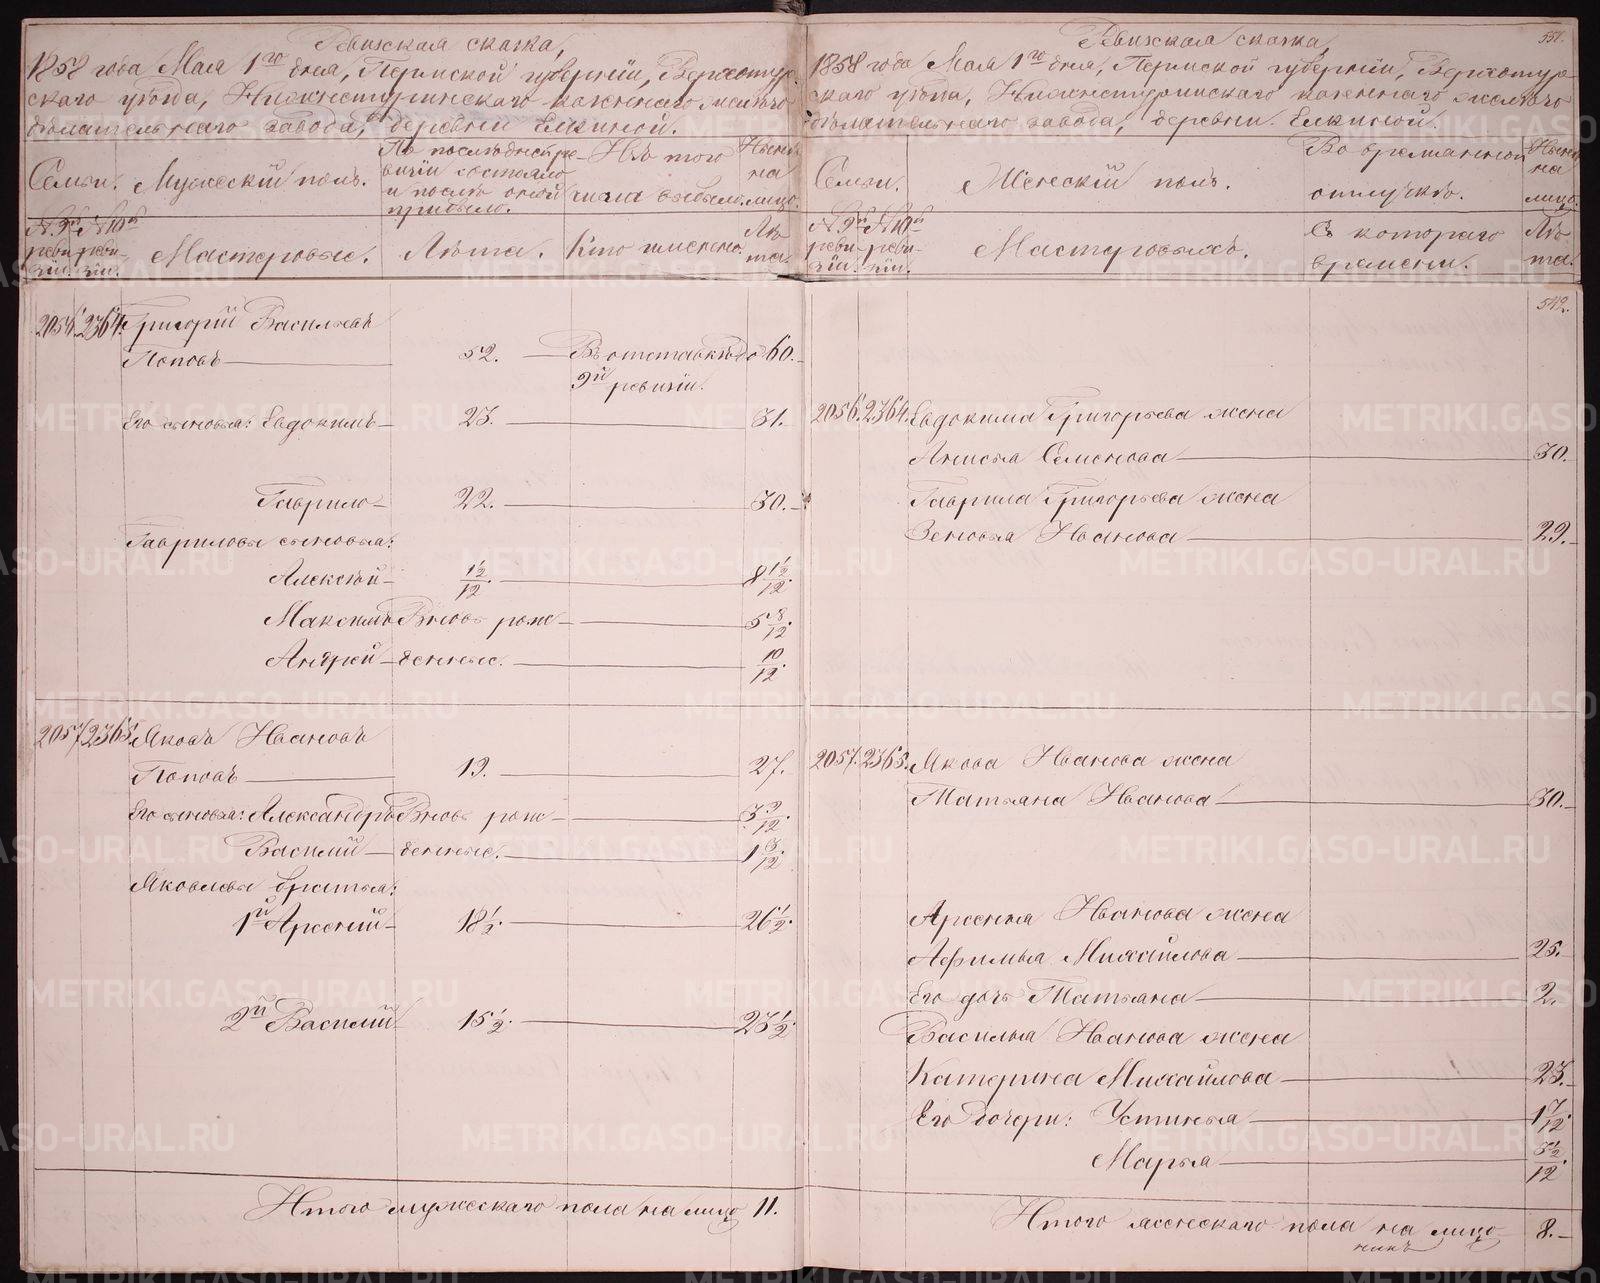 Ревизская сказка,
1858 года Мая 1го дня, Пермской губерніи, Верхотур-
скаго уѣзда, Нижнетуринскаго казеннаго желѣзо
дѣлательнаго завода, деревни Елкиной.
Семьи. Мужескій полъ. По послѣдней ре- Изъ того Нынѣ
визіи состояло на
и послѣ оной числа выбыло. лицо.
прибыло.
№ 9й № 10й Лѣ
реви- реви- Мастеровые. Лѣта. Кто именно. та.
зіи. зіи.
2056. 2364. Григорій Васильевъ
Поповъ 52. Въ отставкѣ до 60.
9й ревизіи.
Его сыновья: Евдокимъ 23. 31.
Гаврило 22. 30.
Гавриловы сыновья:
Алексѣй 1½/12. 8 1½/12.
Максимъ Вновь рож- 5 8/12.
Андрей денные. 10/12.
2057. 2365. Яковъ Ивановъ
Поповъ 19. 27.
Его сыновья: Александръ Вновь рож- 3 9/12.
Василій денные. 1 3/12.
Яковлевы братья:
1й Арсеній 18½. 26½.
2й Василій 15½. 23½.
Итого мужескаго пола на лицо 11.
551.
Ревизская сказка,
1858 года Мая 1го дня, Пермской губерніи, Верхотур-
скаго уѣзда, Нижнетуринскаго казеннаго желѣзо
дѣлательнаго завода, деревни Елкиной.
Семьи. Женскій полъ. Во временной Нынѣ
на
отлучкѣ. лицо.
№ 9й № 10й Съ котораго Лѣ
реви- реви- Мастеровыхъ. времени. та.
зіи. зіи.
549.
2056. 2364. Евдокима Григорьева жена
Анисья Семенова 30.
Гаврила Григорьева жена
Зеновья Иванова 29.
2057. 2365. Якова Иванова жена
Татьяна Иванова 30.
Арсенья Иванова жена
Афимья Михайлова 25.
Его дочь Татьяна 2.
Василья Иванова жена
Катерина Михайлова 23.
Его дочери: Устинья 1 7/12.
Марья 3½/12
Итого женскаго пола на лицо 8.
METRIKI.GASO-URAL.RU